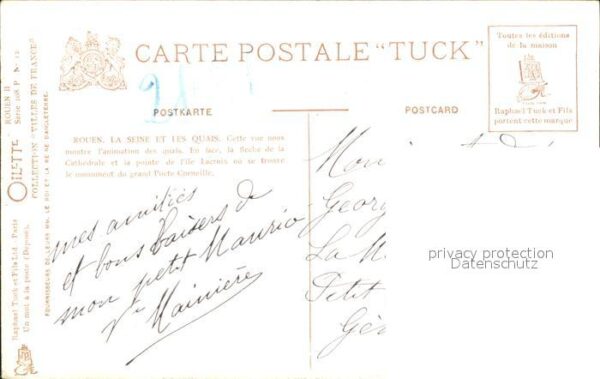 CARTE POSTALE "TUCK"
POSTKARTE
POSTCARD
Toutes les éditions
de la maison
Raphael Tuck et Fils
portent cette marque
21
ROUEN. LA SEINE ET LES QUAIS. Cette vue nous
montre l'animation des quais. En face, la flèche de la
Cathédrale et la pointe de l'Ile Lacroix où se trouve
le monument du grand Poète Corneille.
OILETTE ROUEN II
Série 108 P. No 12
COLLECTION "VILLES DE FRANCE"
FOURNISSEURS DE LEURS MM. LE ROI ET LA REINE D'ANGLETERRE.
Raphael Tuck et Fils Ltd. Paris
Un mot à la poste (Déposé).
mes amitiés
et bons baisers de
mon petit Maurice
Vve Mainière
Georg
La
Petit
privacy protection
Datenschutz